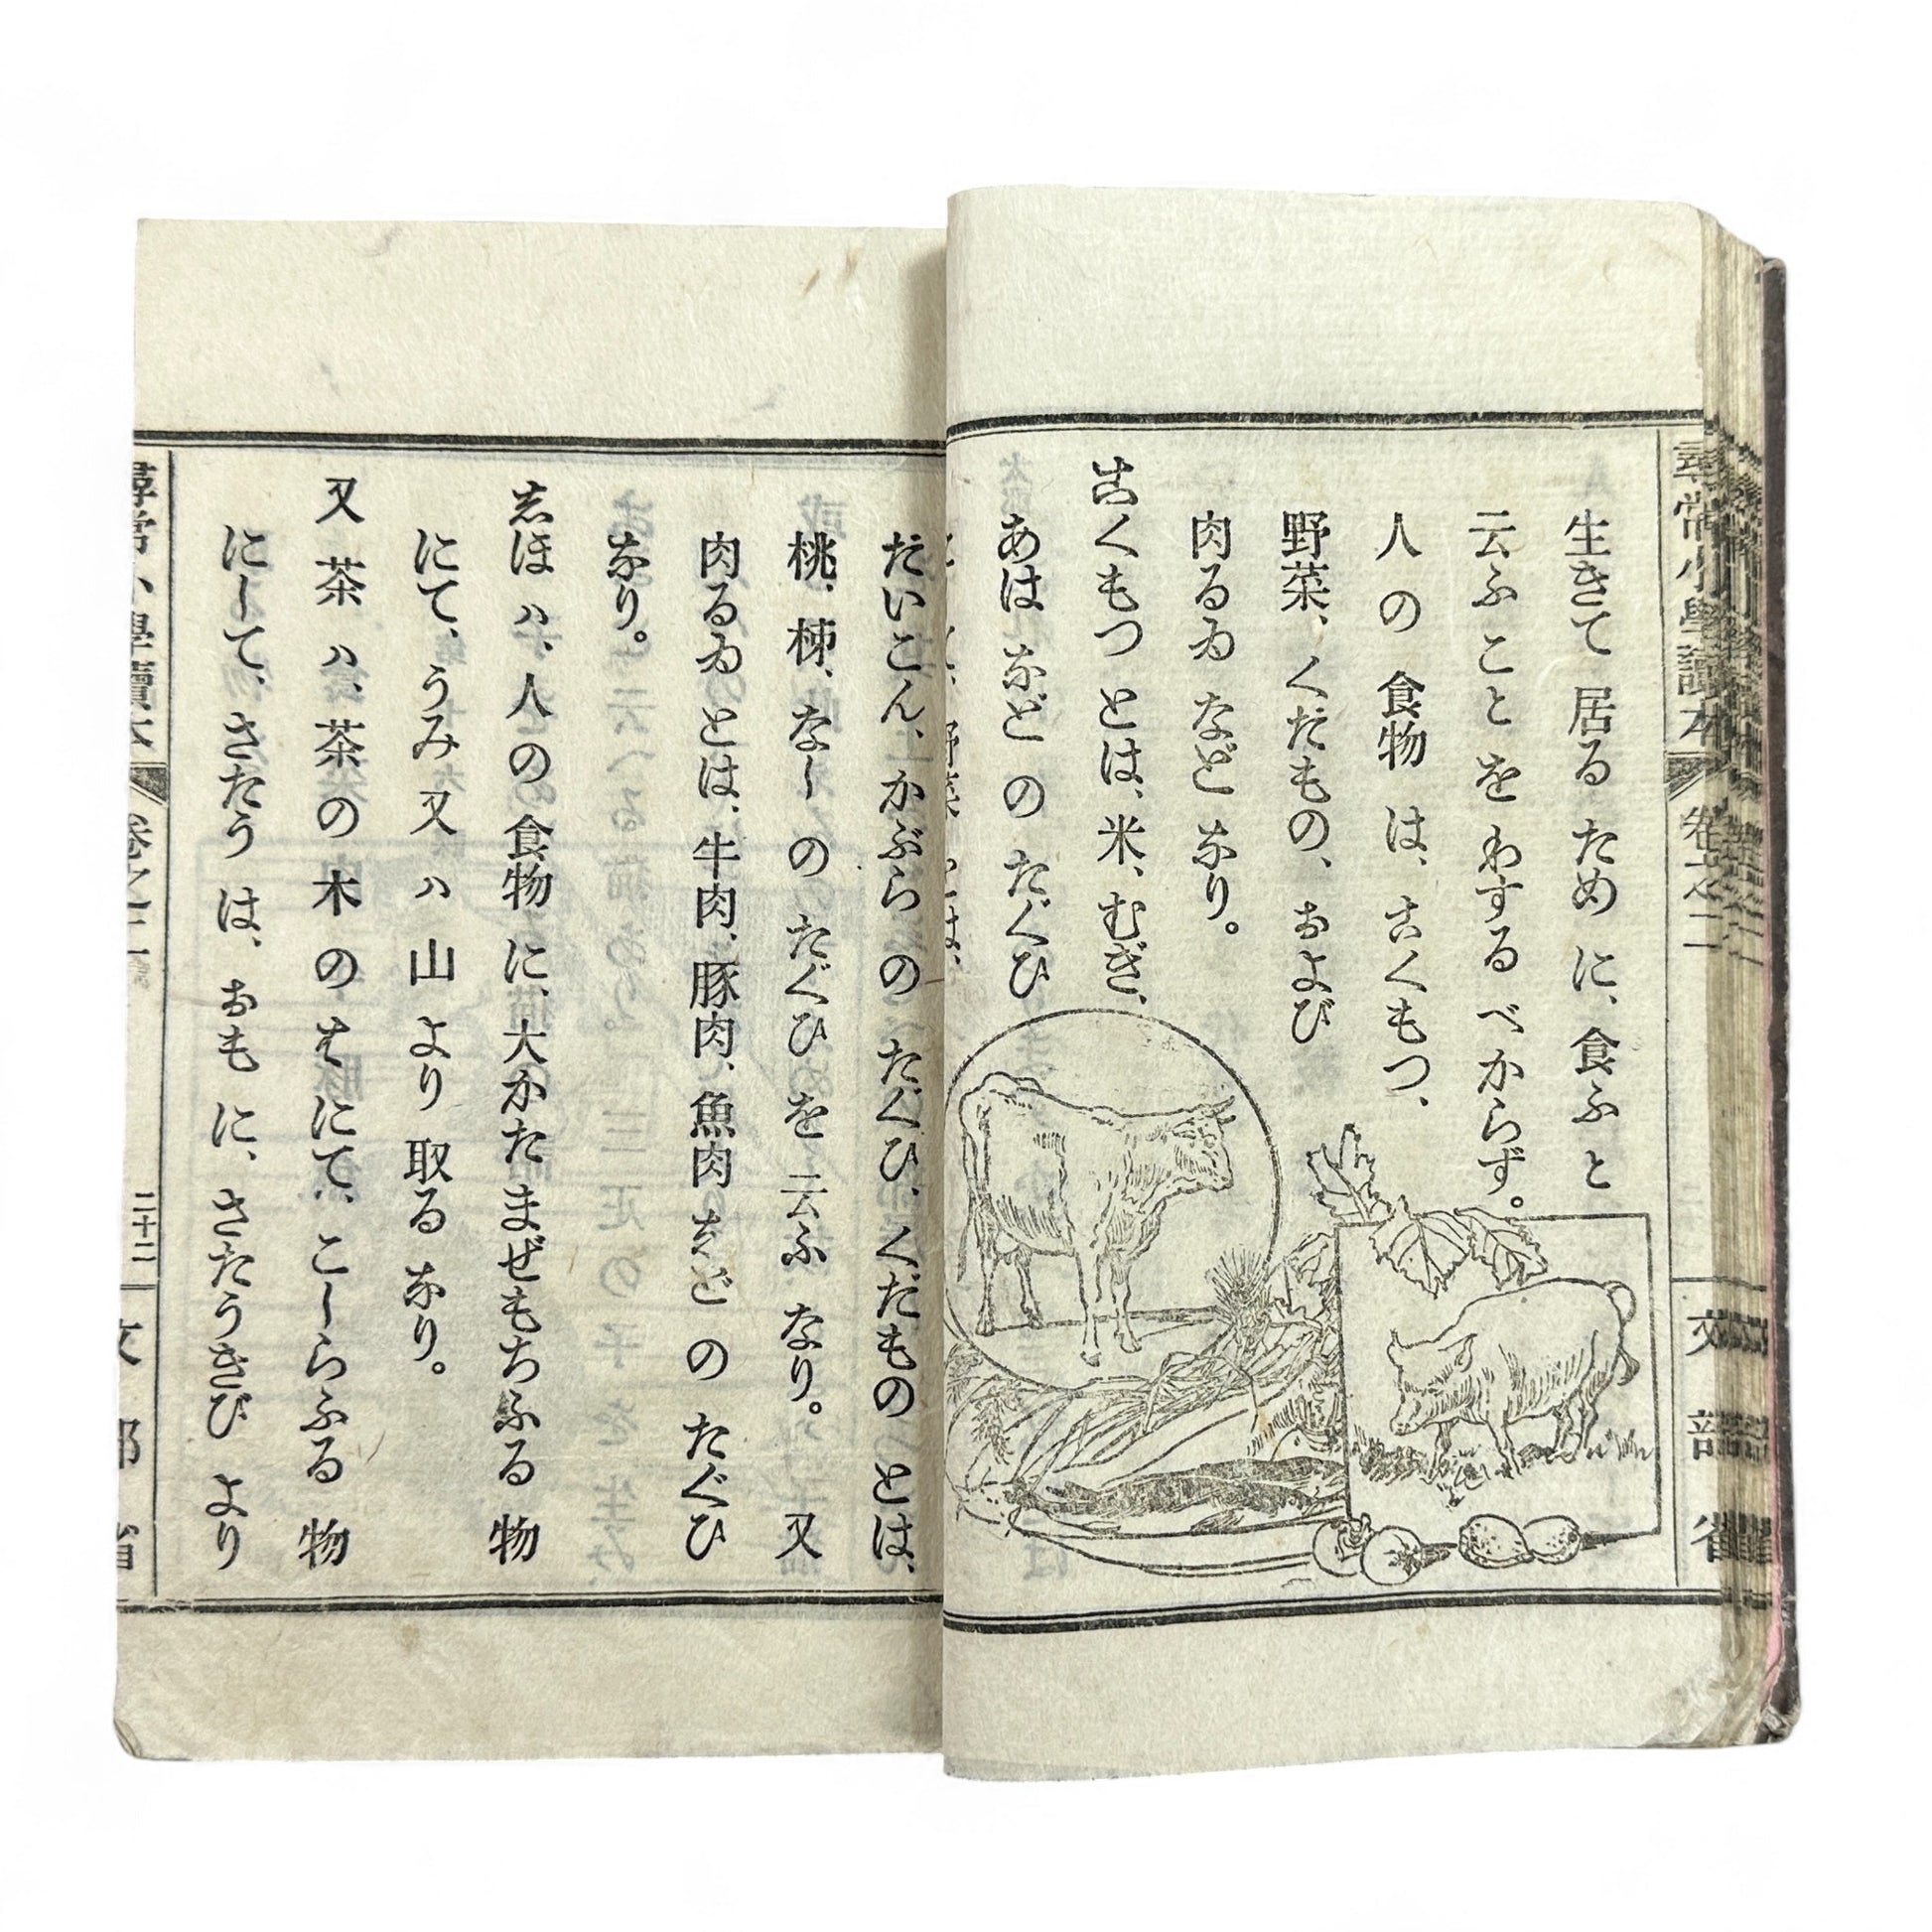 尋常小學讀本 卷之二 文部省
生きて 居る ため に、食ふ と
云ふ こと を わする べからず。
人 の 食物 は、こくもつ、
野菜、くだもの、および
肉るゐ など なり。
こくもつ とは、米、むぎ、
あは など の たぐひ
野菜 とは、
だいこん、かぶら の たぐひ、くだもの とは、
桃、柹、なし の たぐひ を 云ふ なり。又
肉るゐ とは、牛肉、豚肉、魚肉 など の たぐひ
なり。
志ほ ハ、人 の 食物 に、大かた まぜもちふる 物
にて、うみ 又 ハ 山 より 取る なり。
又 茶 ハ、茶 の 木 の は にて、こしらふる 物
にして、さたう は、おも に、さたうきび より
尋常小學讀本 卷之二 二十二 文部省